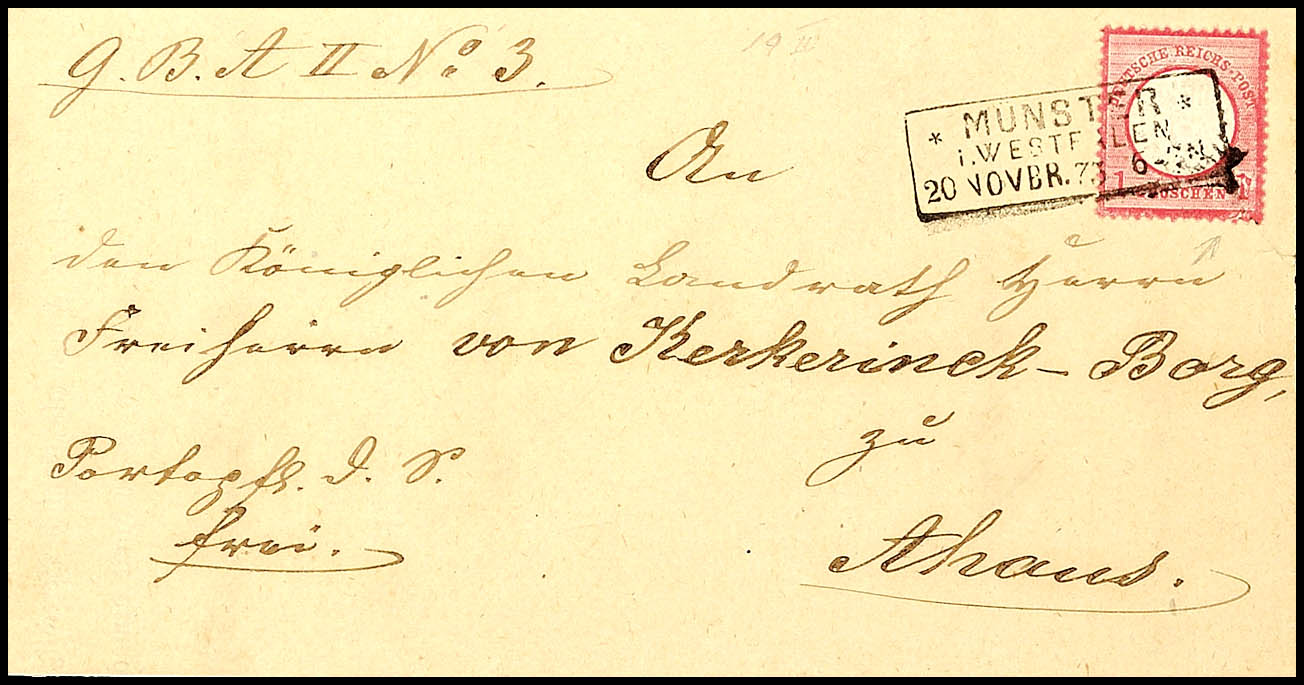 G. B. A II No 3.
An
den Königlichen Landrath Herrn
Freiherrn von Kerkerinck-Borg,
zu
Ahaus.
Portopfl. D. S.
frei.
* MÜNSTER *
i. WESTFALEN
20 NOVBR. 73 6
DEUTSCHE REICHS-POST
1 GROSCHEN 1